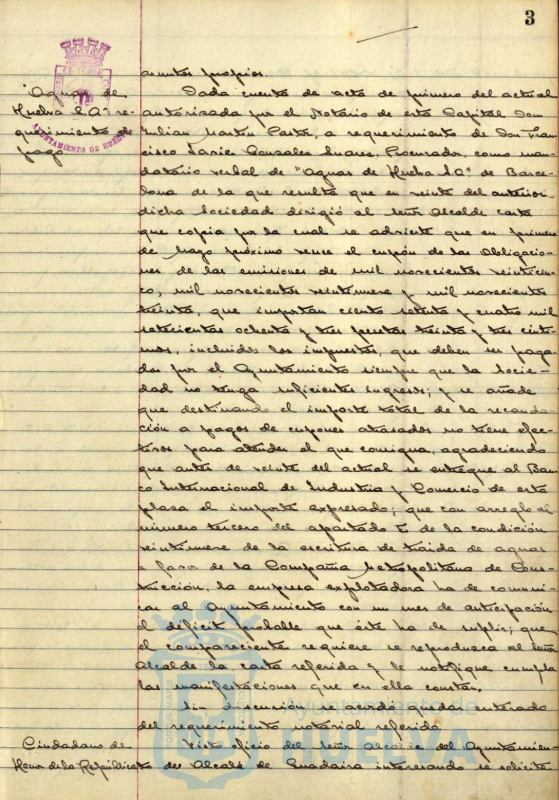 3
asuntos propios.
Aguas de
Huelva S.A. re-
querimiento de
pago
AYUNTAMIENTO DE HUELVA
Dada cuenta de acta de primero del actual
autorizada por el Notario de esta Capital Don
Julian Martin Castro, a requerimiento de Don Fran-
cisco Javier Gonzalez Suarez, Procurador, como man-
datario verbal de "Aguas de Huelva S.A." de Barce-
lona de la que resulta que en veinte del anterior
dicha Sociedad dirigió al señor Alcalde carta
que copia por la cual se advierte que en primero
de Mayo próximo vence el cupón de las Obligacio-
nes de las emisiones de mil novecientos veinticin-
co, mil novecientos veintinueve y mil novecientos
treinta, que importan ciento setenta y cuatro mil
setecientas ochenta y tres pesetas treinta y tres cénti-
mos, incluidos los impuestos, que deben ser paga-
dos por el Ayuntamiento siempre que la Socie-
dad no tenga suficientes ingresos; y se añade
que destinando el importe total de la recauda-
ción a pagos de cupones atrasados no tiene efec-
tivos para atender el que consigna, agradeciendo
que antes de veinte del actual se entregue al Ban-
co Internacional de Industria y Comercio de esta
plaza el importe expresado; que con arreglo al
número tercero del apartado E de la condición
veintinueve de la escritura de traída de aguas
a favor de la Compañia Metropolitana de Cons-
trucción, la empresa explotadora ha de comuni-
car al Ayuntamiento con un mes de anticipación
el déficit probable que éste ha de suplir; que
el compareciente requiere se reproduzca al señor
Alcalde la carta referida y le notifique cumpla
las manifestaciones que en ella constan.
Sin discusión se acordó quedar enterado
del requerimiento notarial referido.
Ayuntamiento de
HUELVA
Ciudadano de
Honor de la República
Visto oficio del señor Alcalde del Ayuntamien-
to de Alcalá de Guadaira interesando se solicite